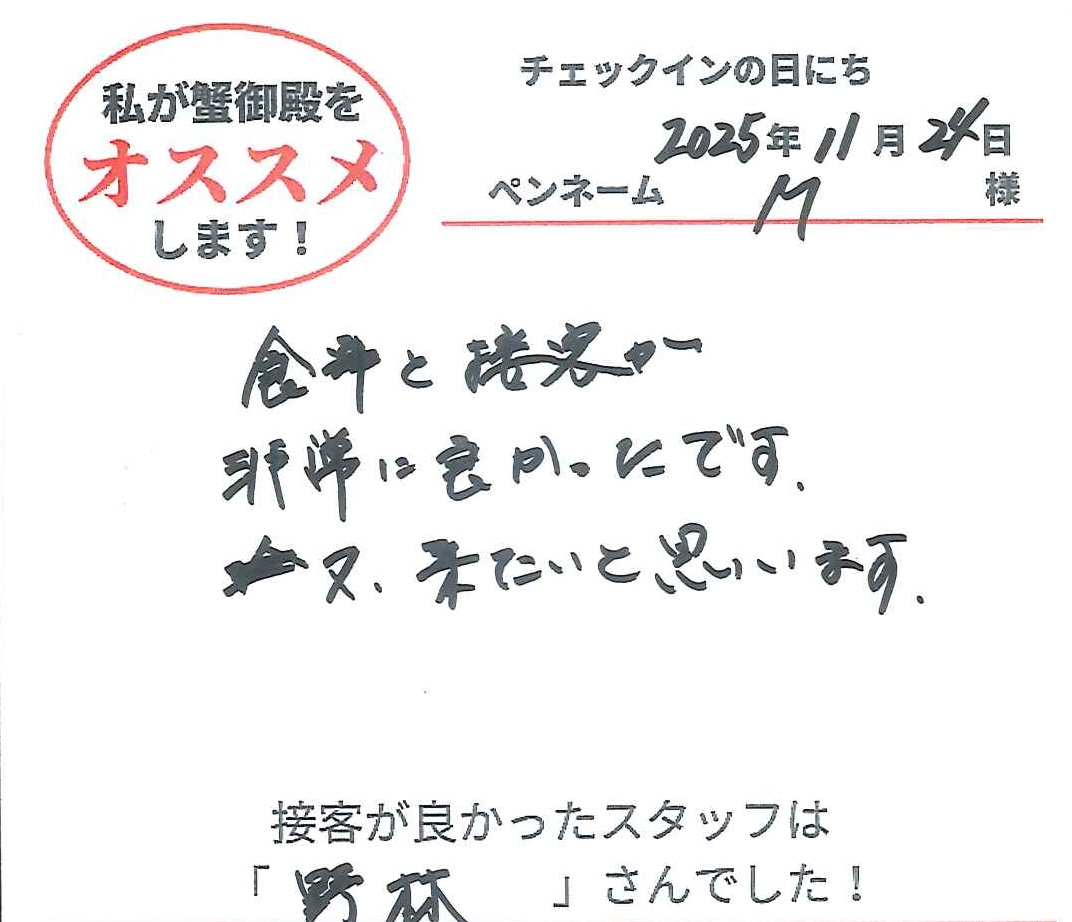 私が蟹御殿を
オススメ
します！
チェックインの日にち
2025年11月24日
ペンネーム M 様
食事と接客が
非常に良かったです.
又、来たいと思います.
接客が良かったスタッフは
「野林」さんでした！